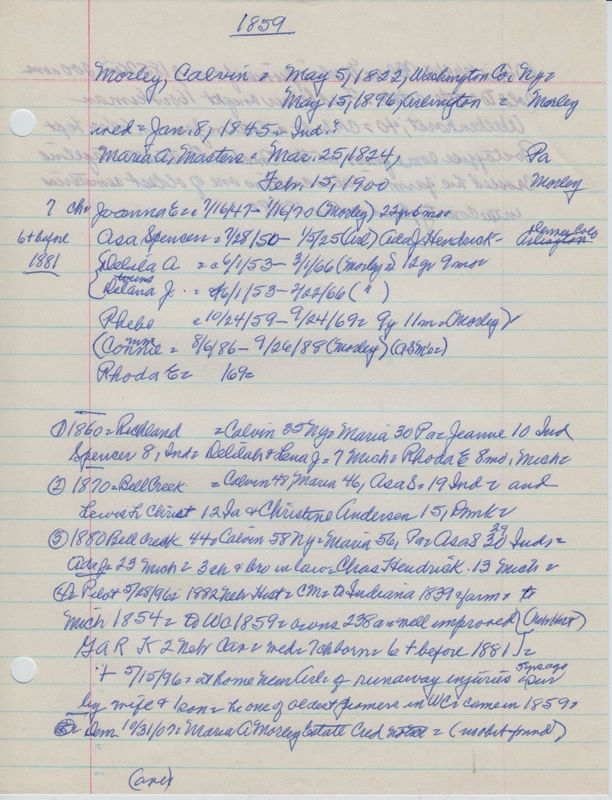 1859
Morley, Calvin = May 5, 1822, Washington Co. Ny=
May 15, 1896, Arlington = Morley
med = Jan. 8, 1845 = Ind.
Maria A. Masters = Mar. 25, 1824, Pa
Febr. 15, 1900 Morley
7 chr Joanna E = 7/16/47 - 7/16/70 (Morley) 22yr 6mo
6 + before Asa Spencer = 7/28/50 - 1/5/25 (Arl) (Ada J. Hendrick - Arlington
1881 Delila A = 6/1/53 - 3/1/66 (Morley) 12yr 9mo
twins
Delana J. = 6/1/53 - 2/22/66 ( " )
Phebe = 10/24/59 - 9/24/69 = 9y 11m = (Morley)
(Connie = 8/6/86 - 9/26/88 (Morley) (ASM)
Rhoda E =
① 1860 = Richland = Calvin 35 Ny = Maria 30 Pa = Jeanne 10 Ind
Spencer 8, Ind = Delilah & Lena J = 7 Mich = Rhoda E 8mo, Mich =
② 1870 = Bell Creek = Calvin 48, Maria 46, Asa S = 19 Ind = and
Lewis h Christ 12 Ia & Christine Andersen 15, Dmk =
③ 1880 Bell Creek 44 = Calvin 58 Ny = Maria 56, Pa = Asa S 29 30 Ind =
Ada J = 23 Mich = 3 ch & bro in law = Chas Hendrick 13 Mich =
④ Pilot 5/28/96 = 1882 Nebr Hist = CM = to Indiana 1839 = farm = to
Mich 1854 = to WC 1859 = owns 238 a = well improved (Nebr Hist)
GAR K 2 Nebr Cav = med = 7 ch born = 6 + before 1881
+ 5/15/96 = at home near Arl = of runaway injuries 5 yrs ago = Sur
by wife & 1 son = he one of oldest farmers in WC = came in 1859 =
⑤ Dem 10/31/07 = Maria A Morley Estate Cred = (no obit found)
(over)